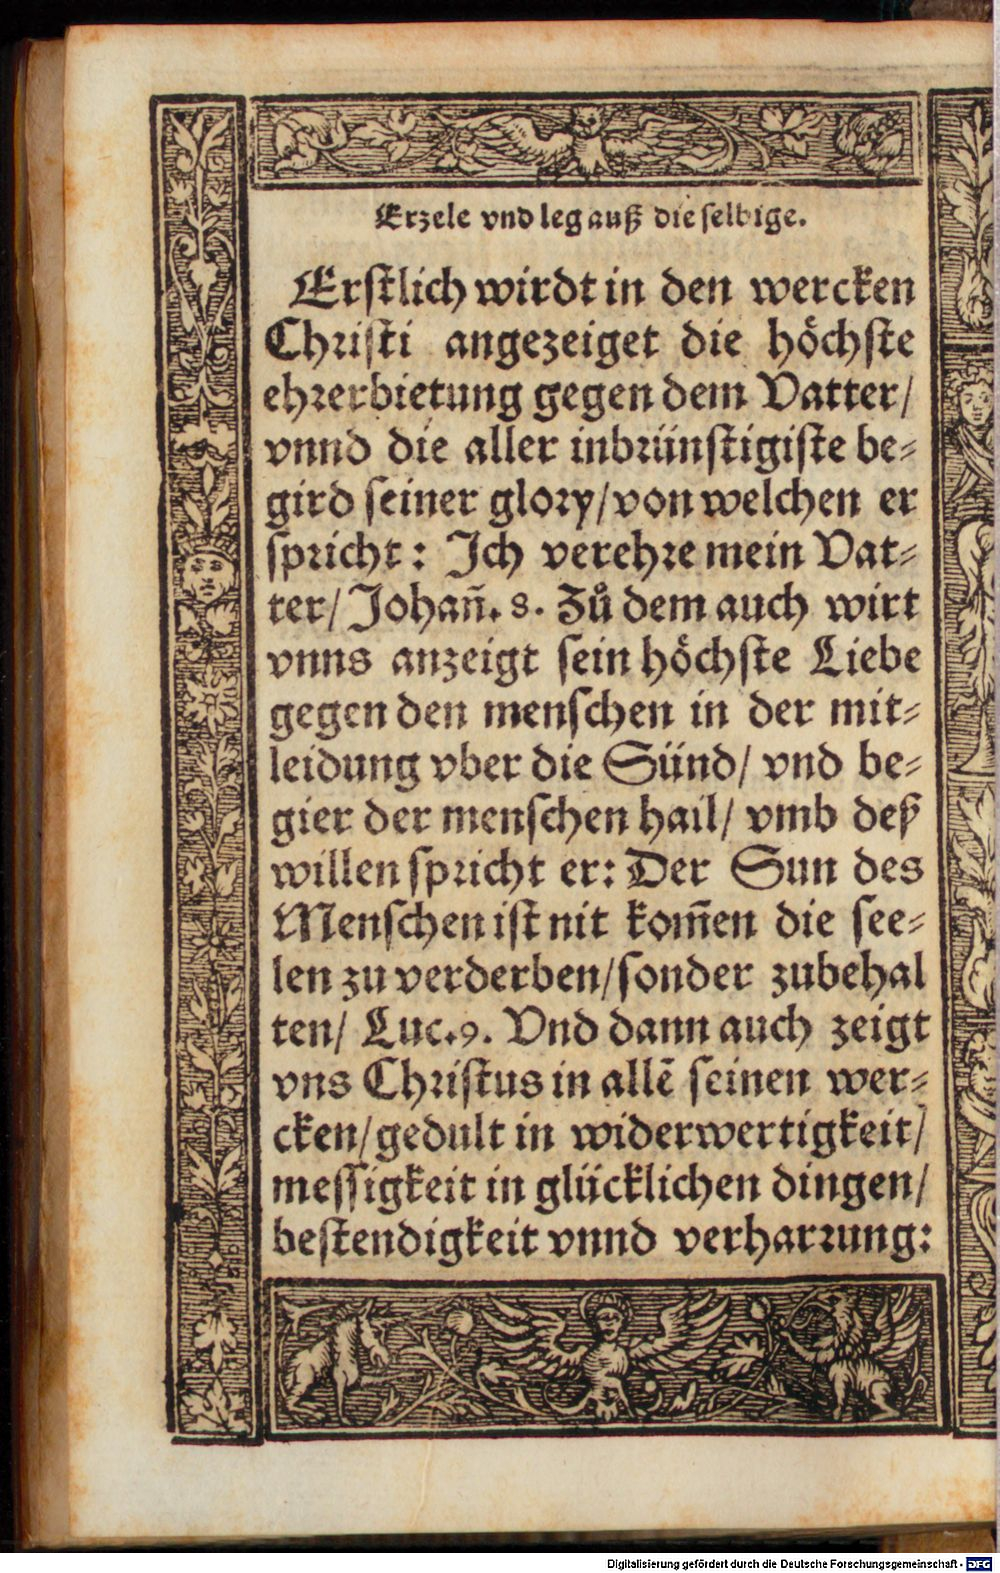 Erzele vnd leg auß die selbige.
Erstlich wirdt in den wercken
Christi angezeiget die höchste
ehrerbietung gegen dem Vatter/
vnnd die aller inbrünstigiste be-
gird seiner glory/ von welchen er
spricht: Ich verehre mein Vat-
ter/ Johañ. 8. Zů dem auch wirt
vnns anzeigt sein höchste Liebe
gegen den menschen in der mit-
leidung vber die Sünd/ vnd be-
gier der menschen hail/ vmb deß
willen spricht er: Der Sun des
Menschen ist nit kom̃en die see-
len zu verderben/ sonder zubehal
ten/ Luc. 9. Vnd dann auch zeigt
vns Christus in allẽ seinen wer-
cken/ gedult in widerwertigkeit/
messigkeit in glücklichen dingen/
bestendigkeit vnnd verharrung:
Digitalisierung gefördert durch die Deutsche Forschungsgemeinschaft - DFG